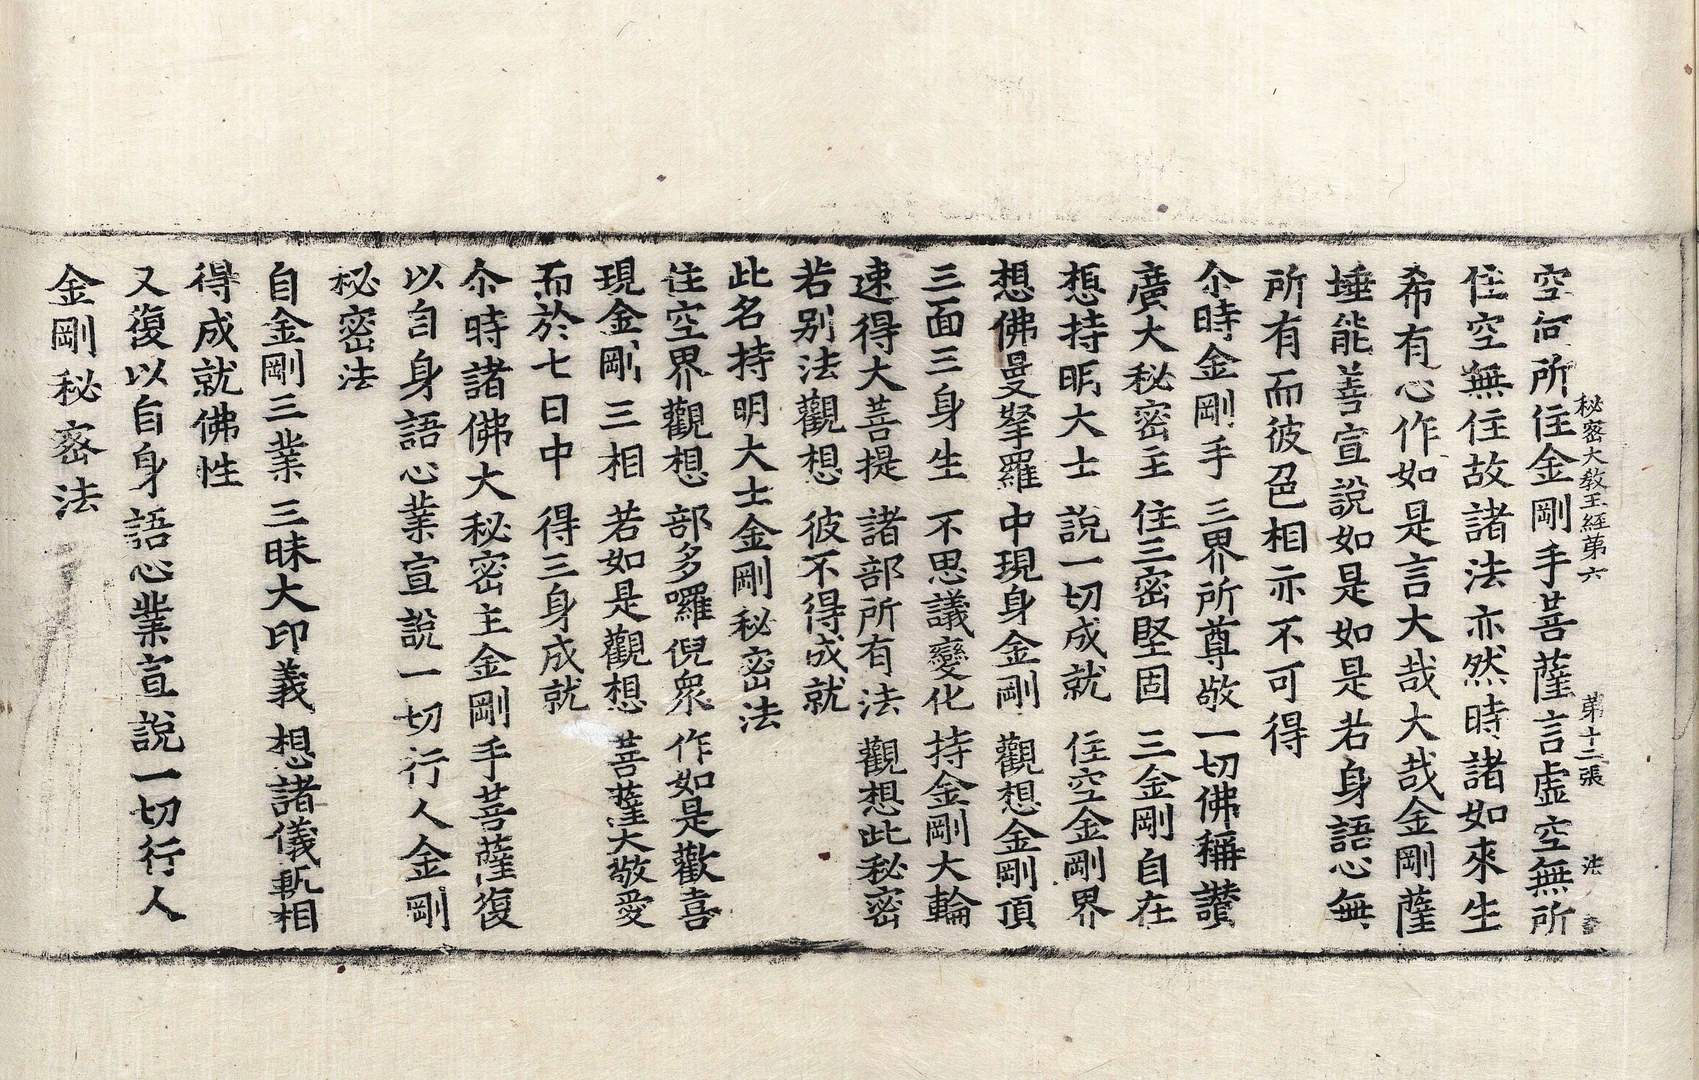 秘密大教王經第六 第十二張 法
空何所住金剛手菩薩言虛空無所
住空無住故諸法亦然時諸如來生
希有心作如是言大哉大哉金剛薩
埵能善宣說如是如是若身語心無
所有而彼色相亦不可得
尒時金剛手 三界所尊敬 一切佛稱讚
廣大秘密主 住三密堅固 三金剛自在
想持明大士 說一切成就 住空金剛界
想佛曼拏羅 中現身金剛 觀想金剛頂
三面三身生 不思議變化 持金剛大輪
速得大菩提 諸部所有法 觀想此秘密
若別法觀想 彼不得成就
此名持明大士金剛秘密法
住空界觀想 部多囉倪眾 作如是歡喜
現金剛三相 若如是觀想 菩薩大敬愛
而於七日中 得三身成就
尒時諸佛大秘密主金剛手菩薩復
以自身語心業宣說一切行人金剛
秘密法
自金剛三業 三昧大印義 想諸儀軌相
得成就佛性
又復以自身語心業宣說一切行人
金剛秘密法